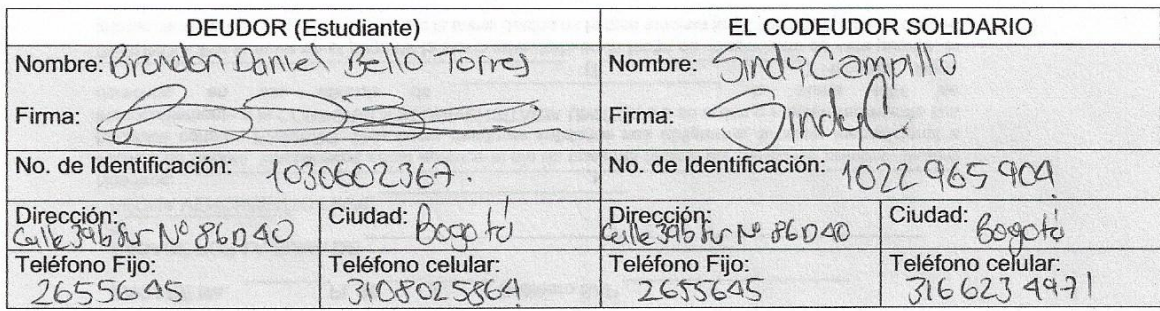 DEUDOR (Estudiante)
EL CODEUDOR SOLIDARIO
Nombre: Brandon Daniel Bello Torres
Nombre: Sindy Campillo
Firma:
Firma: Sindy C
No. de Identificación: 1030602367.
No. de Identificación: 1022 965 904
Dirección:
Calle 39b Sur Nº 86D40
Ciudad: Bogotá
Dirección:
Calle 39b Sur Nº 86D40
Ciudad: Bogotá
Teléfono Fijo:
2655645
Teléfono celular:
3108025864
Teléfono Fijo:
2655645
Teléfono celular:
316 623 4971